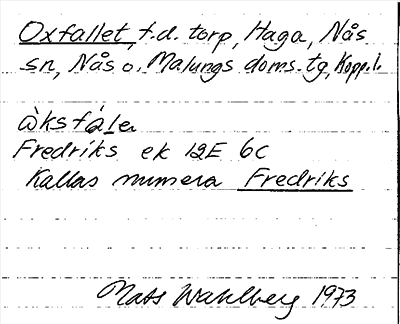 Oxfallet f.d. torp, Haga, Nås
sn, Nås o. Malungs doms. tg, Kopp.l.
àksfáler
Fredriks ek 12E 6C
Kallas numera Fredriks
Mats Wahlberg 1973